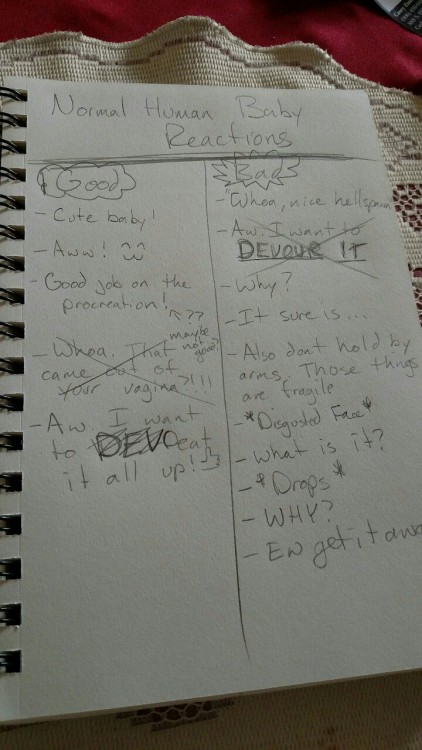 Normal Human Baby
Reactions
Good
- Cute baby!
- Aww!
- Good job on the
procreation!
??
maybe
not
good?
- Whoa. That
came out of
your vagina?!!!
- Aw. I want
to DEVO eat
it all up!
Bad
- "Whoa, nice hellspawn
- Aw. I want to
DEVOUR IT
- Why?
- It sure is...
- Also dont hold by
arms. Those things
are fragile
- *Disgusted Face*
- what is it?
- *Drops*
- WHY?
- Ew get it